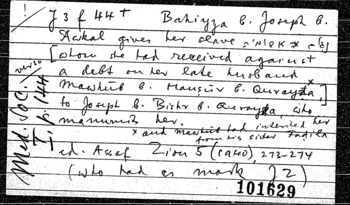 J 3 f 44 + Bahiyya b. Joseph b.
Awkal gives her slave
[whom she had received against
a debt on her late husband
Mawhūb b. Manṣūr b. Qurayẓa x]
to Joseph b. Bishr b. Qurayẓa, who
manumits her. x and Mawhūb had inherited her
from his sister
ed. Assaf Zion 5 (1940), 273-274
(who had as mark J 2)
101629
verso
Med. Soc.
I, p. 144